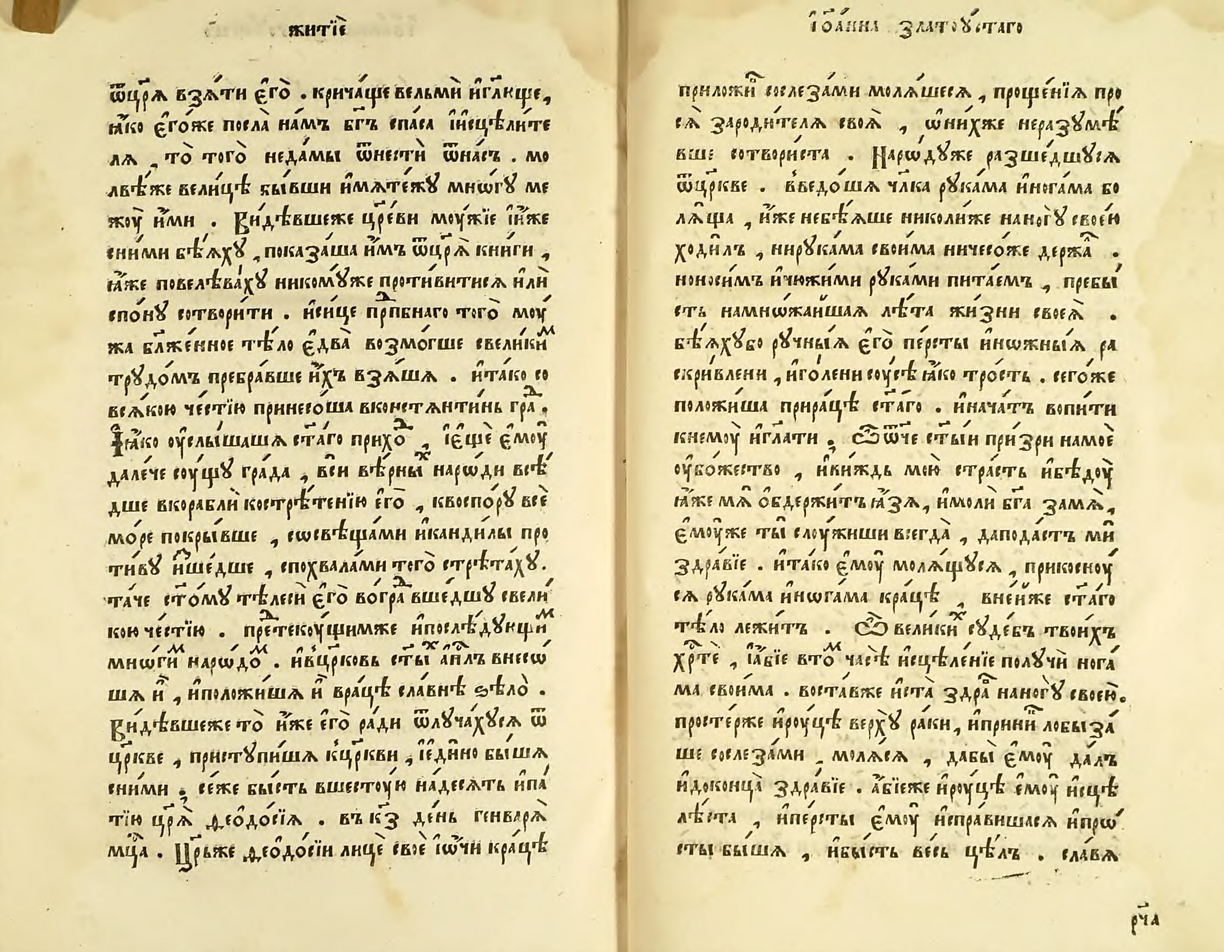 житїѐ
ѿцр҃ѧ взѧ́ти є҆го̀ . крича́ще вельмѝ и҆гл҃юще,
ꙗ҆́ко є҆го́же посла̀ на́мъ бг҃ъ спа́са і҆и҆сцѣли́те
лѧ , то̀ того̀ неда́мы ѿне́сти ѿна́съ . мо
лвѣ́же вели́цѣ бы́вши и҆мѧте́жꙋ мно́гꙋ ме
жꙋ̀ и҆́ми . Ви́дѣвшеже цр҃еви мꙋ́жїе і҆и҆́же
сни́ми бѣ́ѧхꙋ , показа́ша и҆́мъ ѿцр҃ѧ̀ кни́ги ,
ꙗ҆́же повелѣва́хꙋ никомꙋ́же проти́витисѧ и҆лѝ
спо́нꙋ сотвори́ти . и҆си́це прпⷣбнаго того̀ мꙋ́
жа блаже́нное тѣ́ло є҆два̀ возмо́гше свели́киⷨ
трꙋдо́мъ пребра́вше и҆́хъ взѧ́шѧ . и҆та́ко со
всѧ́кою че́стїю принесо́ша вконстѧнти́нь граⷣ .
Ꙗ҆́ко ᲂу҆слы́шашѧ ст҃а́го прихоⷣ , і҆є҆щѐ є҆мꙋ̀
дале́че сꙋ́щꙋ гра́да , вси вѣ́рныⷯ наро́ди всѣ́
дше вкораблѝ костр́ѣтенїю є҆го̀ , квоспо́рꙋ всѐ
мо́ре покры́вше , сѡсвѣща́ми и҆канди́лы про
ти́вꙋ и҆ше́дше , спохвала́ми того̀ стрѣ́тахꙋ .
та́че ст҃о́мꙋ тѣлесѝ є҆го̀ вограⷣ вше́дшꙋ свели́
кою че́стїю . преⷣтекꙋ́щимже и҆послѣ́дꙋющиⷨ
мно́гиⷨ наро́доⷨ . и҆вцр҃ковь ст҃ыⷯ а҆пⷭ҇лъ внесо́
шѧ и҆̀ , и҆положи́шѧ и҆̀ вра́цѣ сла́внѣ ѕѣло̀ .
Ви́дѣвшеже то̀ и҆́же є҆го̀ ра́ди ѿлꙋча́хꙋсѧ ѿ
цр҃кве , пристꙋпи́шѧ кцр҃кви , і҆є҆ди́но бы́шѧ
сни́ми . се́же бы́сть вшестꙋ́ю на́десѧть и҆па
тїю цр҃ѧ̀ ѳео́досїѧ . въ к҃з де́нь генварѧ̀
мцⷭ҇а . Цр҃ьже ѳео́досїи лицѐ своѐ і҆о́чи кра́цѣ
і҆ѡа́нна златоꙋ́стаго
приложѝ сослеза́ми молѧ́шесѧ , проще́нїѧ про
сѧ̀ зароди́телѧ своѧ̀ , ѡ҆ни́хже неразꙋмѣ́
вше сотвори́ста . Наро́дꙋже разше́дшꙋсѧ
ѿцр҃кве . введо́шѧ чл҃ка рꙋка́ма и҆нога́ма бо
лѧ́ща , и҆́же небѣ́ѧше николи́же нано́гꙋ свое́ю
ходи́лъ , нирꙋка́ма свои́ма ничесо́же держаⷧ .
ноно́симъ и҆чюжи́ми рꙋка́ми пита́емъ , пребы́
сть намно́жайшаѧ лѣ́та жи́зни своеѧ̀ .
бѣ́ѧхꙋбо рꙋ́чныѧ є҆го̀ пе́рсты и҆но́жныѧ ра
скривлени , и҆го́лени сꙋсѣ́ ꙗ҆́ко тро́сть . сего́же
положи́ша прира́цѣ ст҃а́го . и҆нача́тъ вопи́ти
кнемꙋ̀ и҆гл҃ати , Ѽѿче ст҃ы́и при́зри намоѐ
ᲂу҆бо́жество , и҆ви́ждь мою̀ стра́сть и҆бѣ́дꙋ
ꙗ҆́же мѧ̀ о҆бдержи́тъ ꙗ҆́зѧ, и҆молѝ бг҃а замѧ̀,
є҆мꙋ́же ты̀ слꙋ́жиши всегда̀ , дапода́стъ мѝ
здра́вїе . и҆та́ко є҆мꙋ̀ молѧ́щꙋсѧ , прикоснꙋ́
сѧ рꙋка́ма и҆нога́ма кра́цѣ , вне́йже ст҃а́го
тѣ́ло лежи́тъ . Ѽ вели́киⷯ сꙋде́бъ твои́хъ
хр҃те , і҆а҆́бїе втоⷨ ча́сѣ и҆сцѣле́нїе полꙋчѝ нога́
ма свои́ма . воста́вже и҆ста̀ здраⷡ нано́гꙋ свое́ю.
просте́рже и҆рꙋ́цѣ верхꙋ̀ ра́ки, и҆принѝⷨ лобыза́
ше сослеза́ми , молѧ́сѧ , дабы̀ є҆мꙋ̀ да́лъ
и҆доконца̀ здра́вїе . а҆́бїеже и҆рꙋ́цѣ є҆мꙋ̀ и҆сцѣ
лѣ́ста , и҆пе́рсты є҆мꙋ̀ и҆спра́вишасѧ и҆про́
сты бы́шѧ , и҆бы́сть ве́сь цѣ́лъ . сла́вѧ
рч҃а